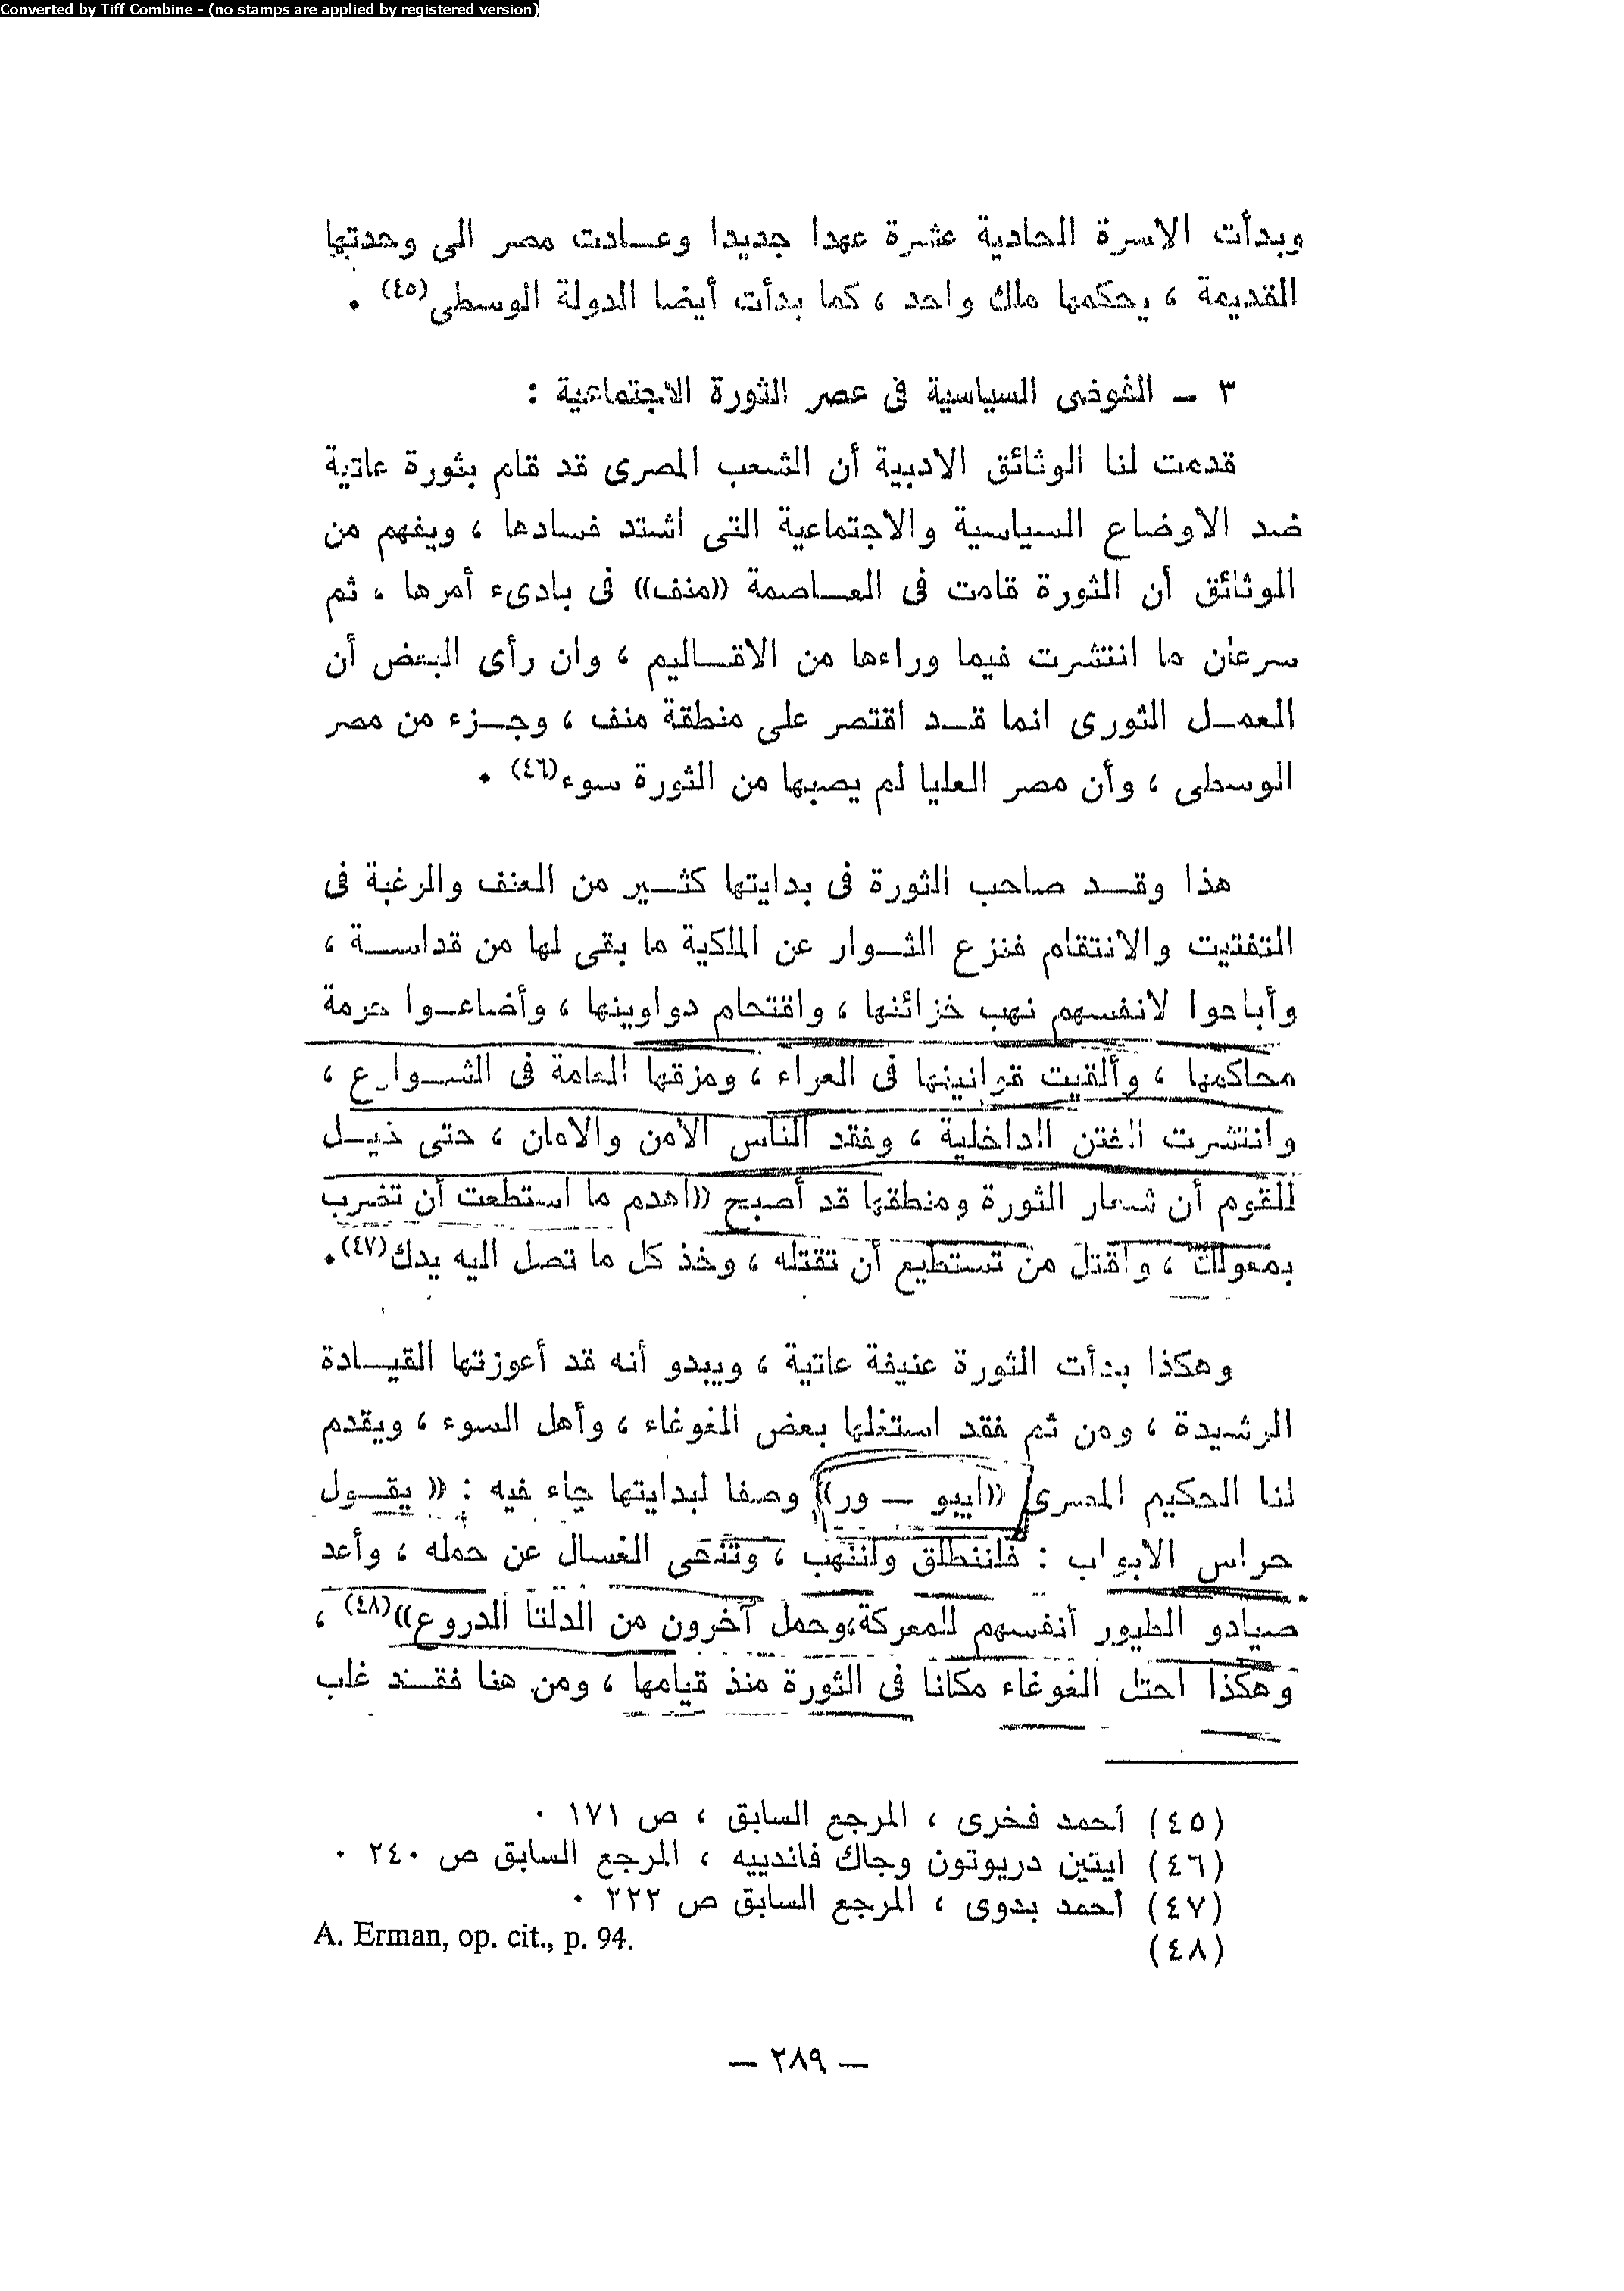 Converted by Tiff Combine - (no stamps are applied by registered version)
وبدأت الاسرة الحادية عشرة عهدا جديدا وعادت مصر الى وحدتها
القديمة ، يحكمها ملك واحد ، كما بدأت أيضا الدولة الوسطى(٤٥) .
٣ ــ الفوضى السياسية فى عصر الثورة الاجتماعية :
قدمت لنا الوثائق الادبية أن الشعب المصرى قد قام بثورة عاتية
ضد الاوضاع السياسية والاجتماعية التى اشتد فسادها ، ويفهم من
الوثائق أن الثورة قامت فى العاصمة ((منف)) فى بادىء أمرها ، ثم
سرعان ما انتشرت فيما وراءها من الاقاليم ، وان رأى البعض أن
العمل الثورى انما قد اقتصر على منطقة منف ، وجزء من مصر
الوسطى ، وأن مصر العليا لم يصبها من الثورة سوء(٤٦) .
هذا وقد صاحب الثورة فى بدايتها كثير من العنف والرغبة فى
التفتيت والانتقام فنزع الثوار عن الملكية ما بقى لها من قداسة ،
وأباحوا لانفسهم نهب خزائنها ، واقتحام دواوينها ، وأضاعوا حرمة
محاكمها ، وألقيت قوانينها فى العراء ، ومزقها العامة فى الشوارع ،
وانتشرت الفتن الداخلية ، وفقد الناس الامن والامان ، حتى خيل
للقوم أن شعار الثورة ومنطقها قد أصبح ((اهدم ما استطعت أن تضرب
بمعولك ، واقتل من تستطيع أن تقتله ، وخذ كل ما تصل اليه يدك(٤٧).
وهكذا بدأت الثورة عنيفة عاتية ، ويبدو أنه قد أعوزتها القيادة
الرشيدة ، ومن ثم فقد استغلها بعض الغوغاء ، وأهل السوء ، ويقدم
لنا الحكيم المصرى ((ايبو ــ ور)) وصفا لبدايتها جاء فيه : (( يقول
حراس الابواب : فلننطلق ولننهب ، وتنحى الغسال عن حمله ، وأعد
صيادو الطيور أنفسهم للمعركة،وحمل آخرون من الدلتا الدروع))(٤٨) ،
وهكذا احتل الغوغاء مكانا فى الثورة منذ قيامها ، ومن هنا فقد غلب
(٤٥) أحمد فخرى ، المرجع السابق ، ص ١٧١ .
(٤٦) ايتين دريوتون وجاك فاندييه ، المرجع السابق ص ٢٤٠ .
(٤٧) أحمد بدوى ، المرجع السابق ص ٢٢٢ .
(٤٨) A. Erman, op. cit., p. 94.
— ٢٨٩ —